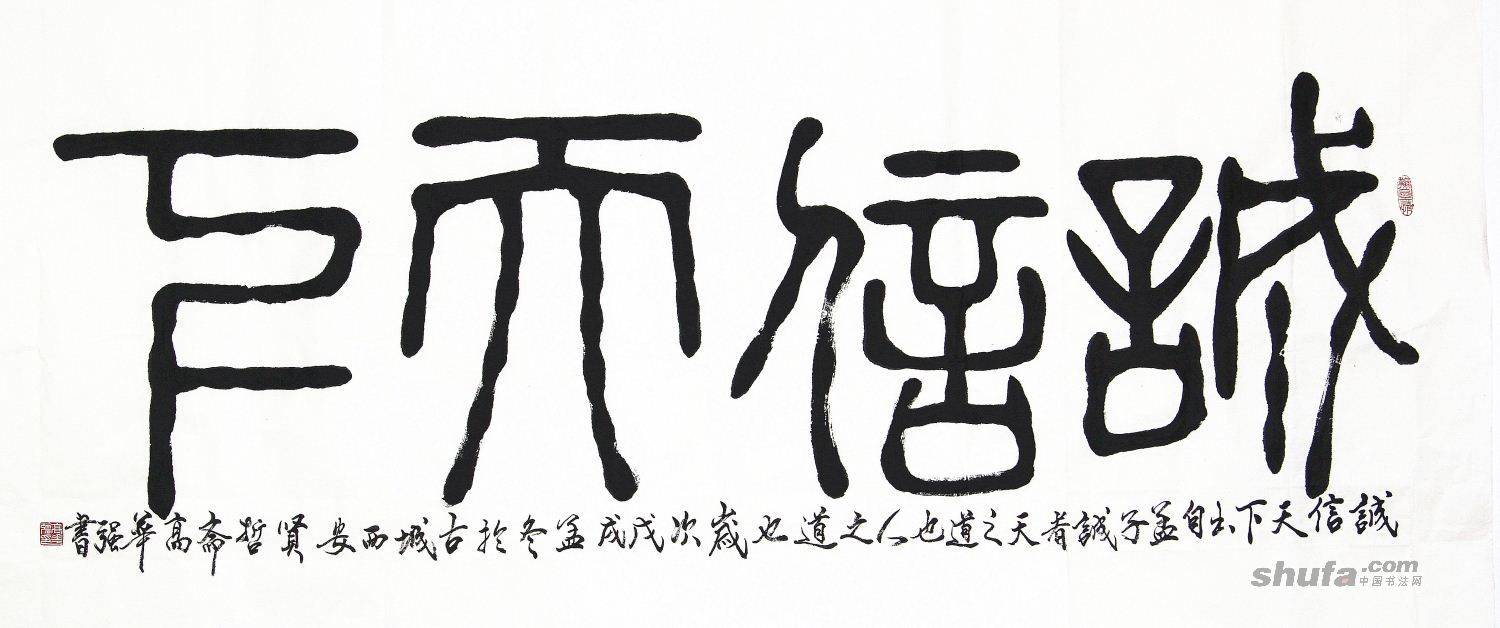 誠信天下
誠信天下出自孟子誠者天之道也人之道也歲次戊戌孟冬於古城西安賢哲斋高華强書
shufa.com
中国书法网